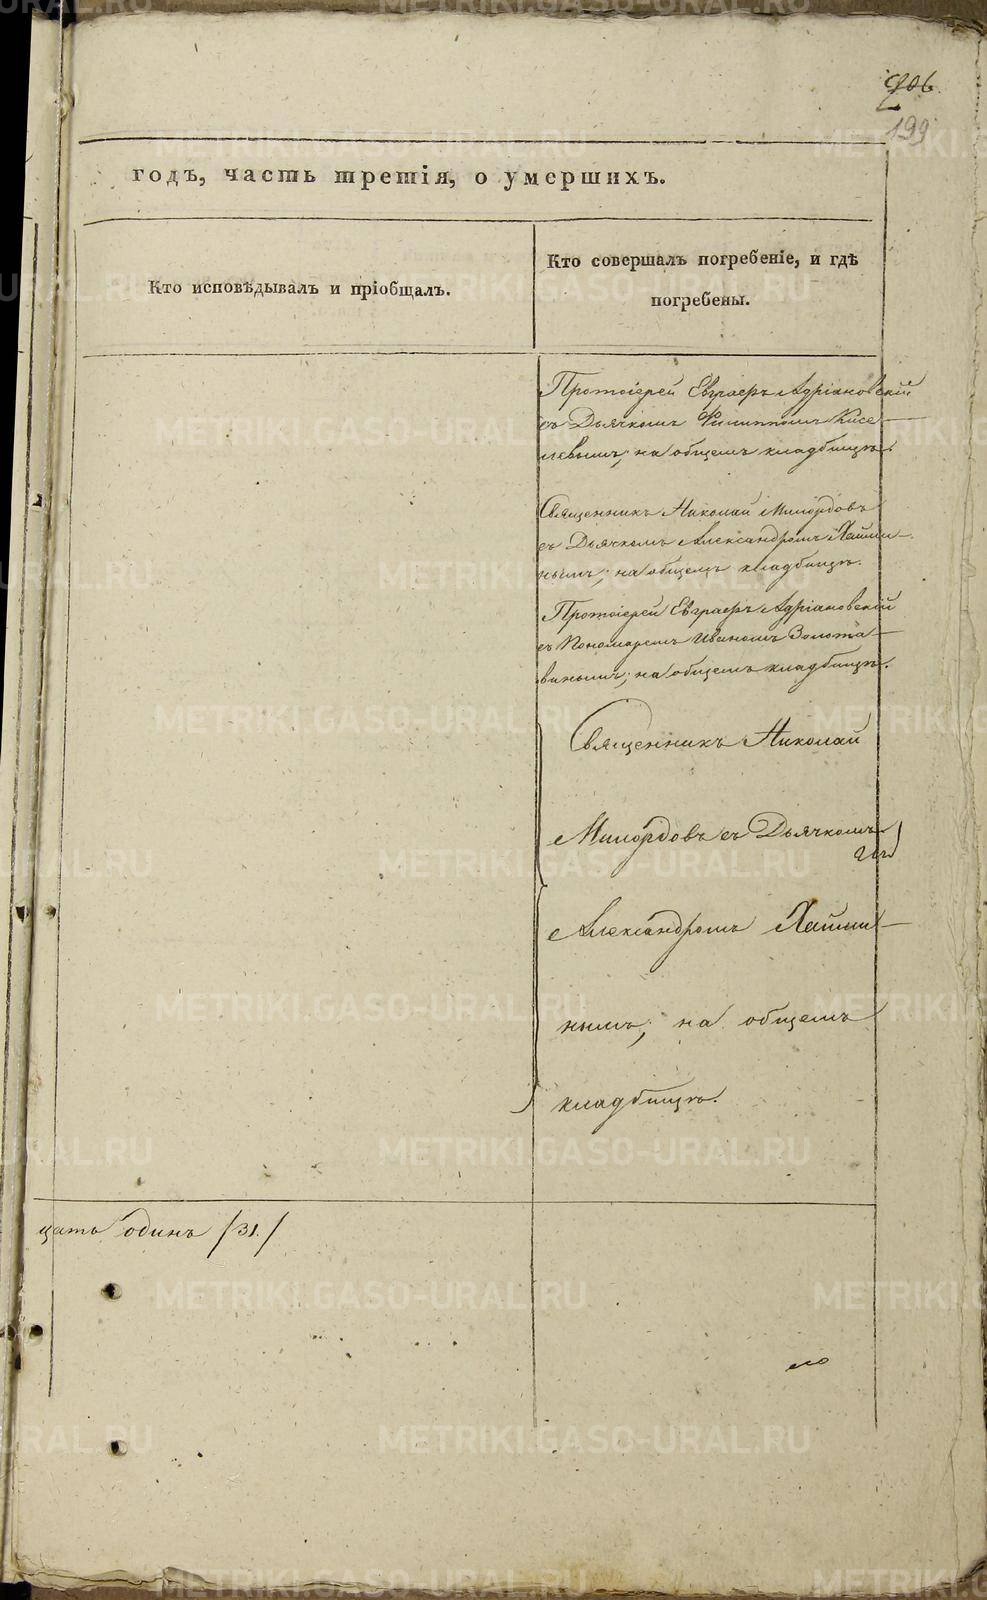 206.
199
годъ, часть третія, о умершихъ.
Кто исповѣдывалъ и пріобщалъ.
Кто совершалъ погребеніе, и гдѣ
погребены.
Протоіерей Евграфъ Адріановскій
съ Дьячкомъ Филиппомъ Кисе-
левымъ; на общемъ кладбищѣ.
Священникъ Николай Милордовъ
съ Дьячкомъ Александромъ Хайми-
нымъ; на общемъ кладбищѣ.
Протоіерей Евграфъ Адріановскій
съ Пономаремъ Иваномъ Золота-
винымъ; на общемъ кладбищѣ.
Священникъ Николай
Милордовъ съ Дьячкомъ
Александромъ Хайми-
нымъ; на общемъ
кладбищѣ.
цать одинъ /31/
METRIKI.GASO-URAL.RU